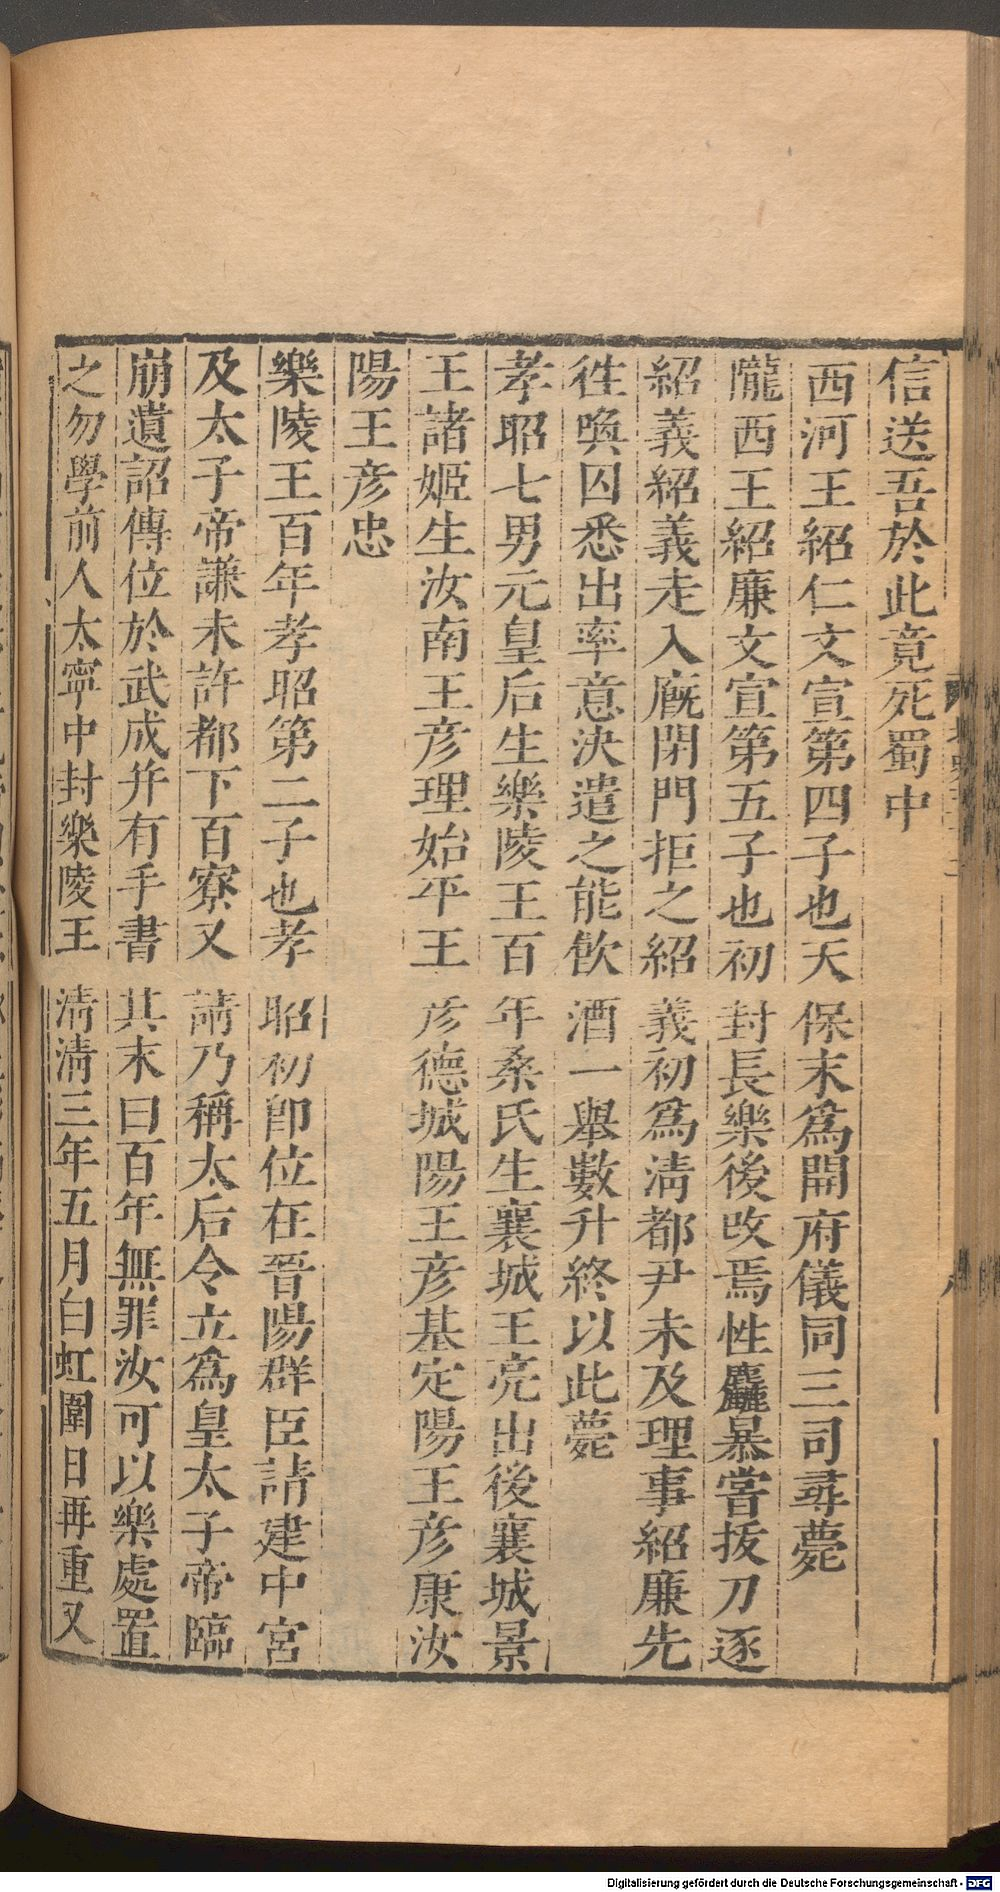 信送吾於此竟死蜀中
西河王紹仁文宣第四子也天保末爲開府儀同三司尋薨
隴西王紹廉文宣第五子也初封長樂後改焉性麤暴嘗拔刀逐
紹義紹義走入廐閉門拒之紹義初爲淸都尹未及理事紹廉先
徃喚囚悉出率意決遣之能飮酒一舉數升終以此薨
孝昭七男元皇后生樂陵王百年桑氏生襄城王亮出後襄城景
王諸姬生汝南王彦理始平王彦德城陽王彦基定陽王彦康汝
陽王彦忠
樂陵王百年孝昭第二子也孝昭初卽位在晉陽群臣請建中宮
及太子帝謙未許都下百寮又請乃稱太后令立爲皇太子帝臨
崩遺詔傳位於武成幷有手書其末曰百年無罪汝可以樂處置
之勿學前人太寧中封樂陵王淸淸三年五月白虹圍日再重又
Digitalisierung gefördert durch die Deutsche Forschungsgemeinschaft - DFG